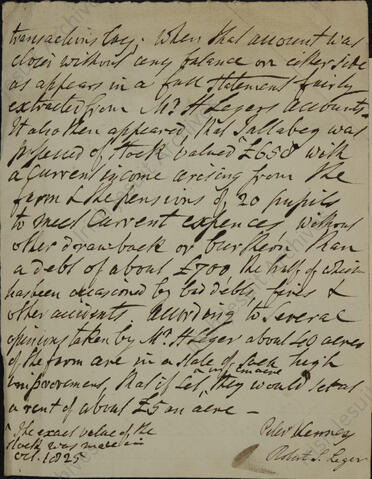 transactions Envy. When that account was
closed without any balance on either side
as appears in a full statement fairly
extracted from Mr. St Legers accounts.
It also then appeared, that Tullabeg was
possessed of stock valued £658* with
a Current income arising from the
farm & the pensions of 20 pupils
to meet Current expences without
other drawback or burthen than
a debt of about £700, the half of which
has been occasioned by bad debts, fires &
other accidents. According to several
opinions taken by Mr. St Leger about 40 acres
of the farm are in a state of such high
improvement, that if Let, they would set at
a rent of about £5 an acre —
* The exact value of the
stock was made in
Oct. 1825
Peter Kenney
Robert St. Leger